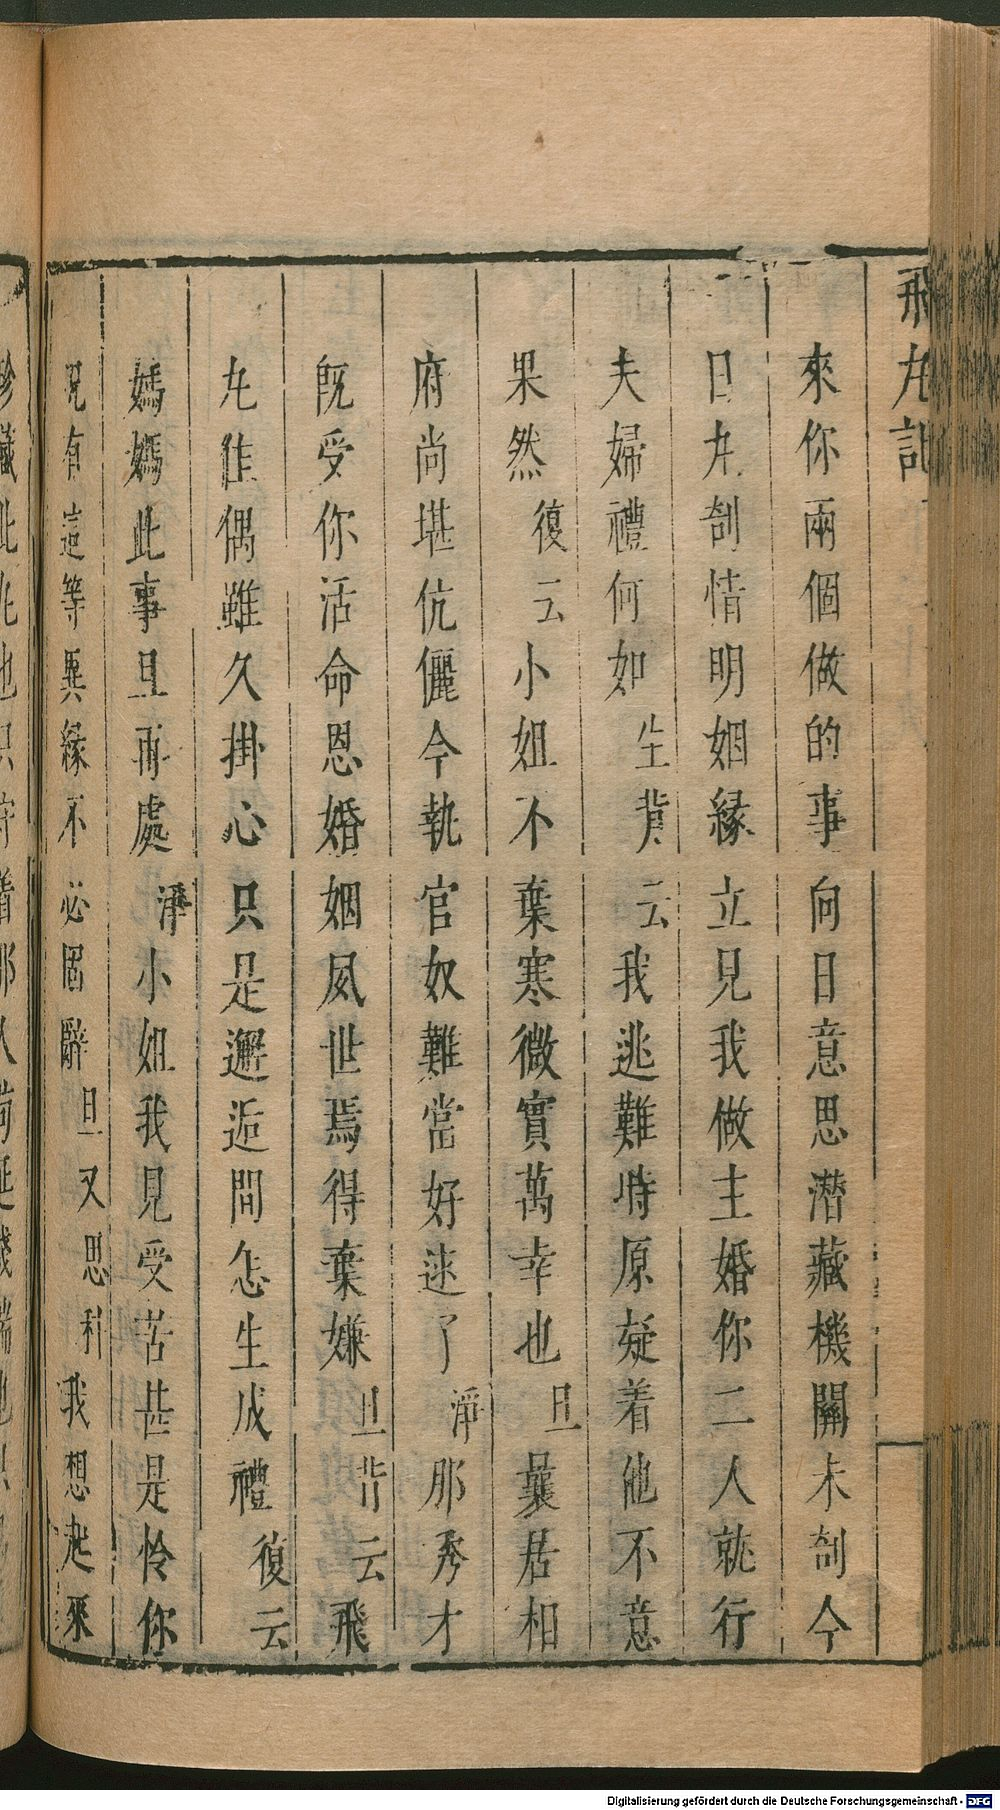 飛丸記
來你兩個做的事向日意思潛藏機關未剖今
日丸剖情明姻緣立見我做主婚你二人就行
夫婦禮何如生背云我逃難時原疑着他不意
果然復云小姐不棄寒微實萬幸也旦曩居相
府尚堪伉儷今執官奴難當好逑了淨那秀才
既受你活命恩婚姻夙世焉得棄嫌旦背云飛
丸佳偶雖久掛心只是邂逅間怎生成禮復云
媽媽此事且再處淨小姐我見受苦甚是憐你
既有這等異緣不必固辭旦又思科我想起來
Digitalisierung gefördert durch die Deutsche Forschungsgemeinschaft - DFG